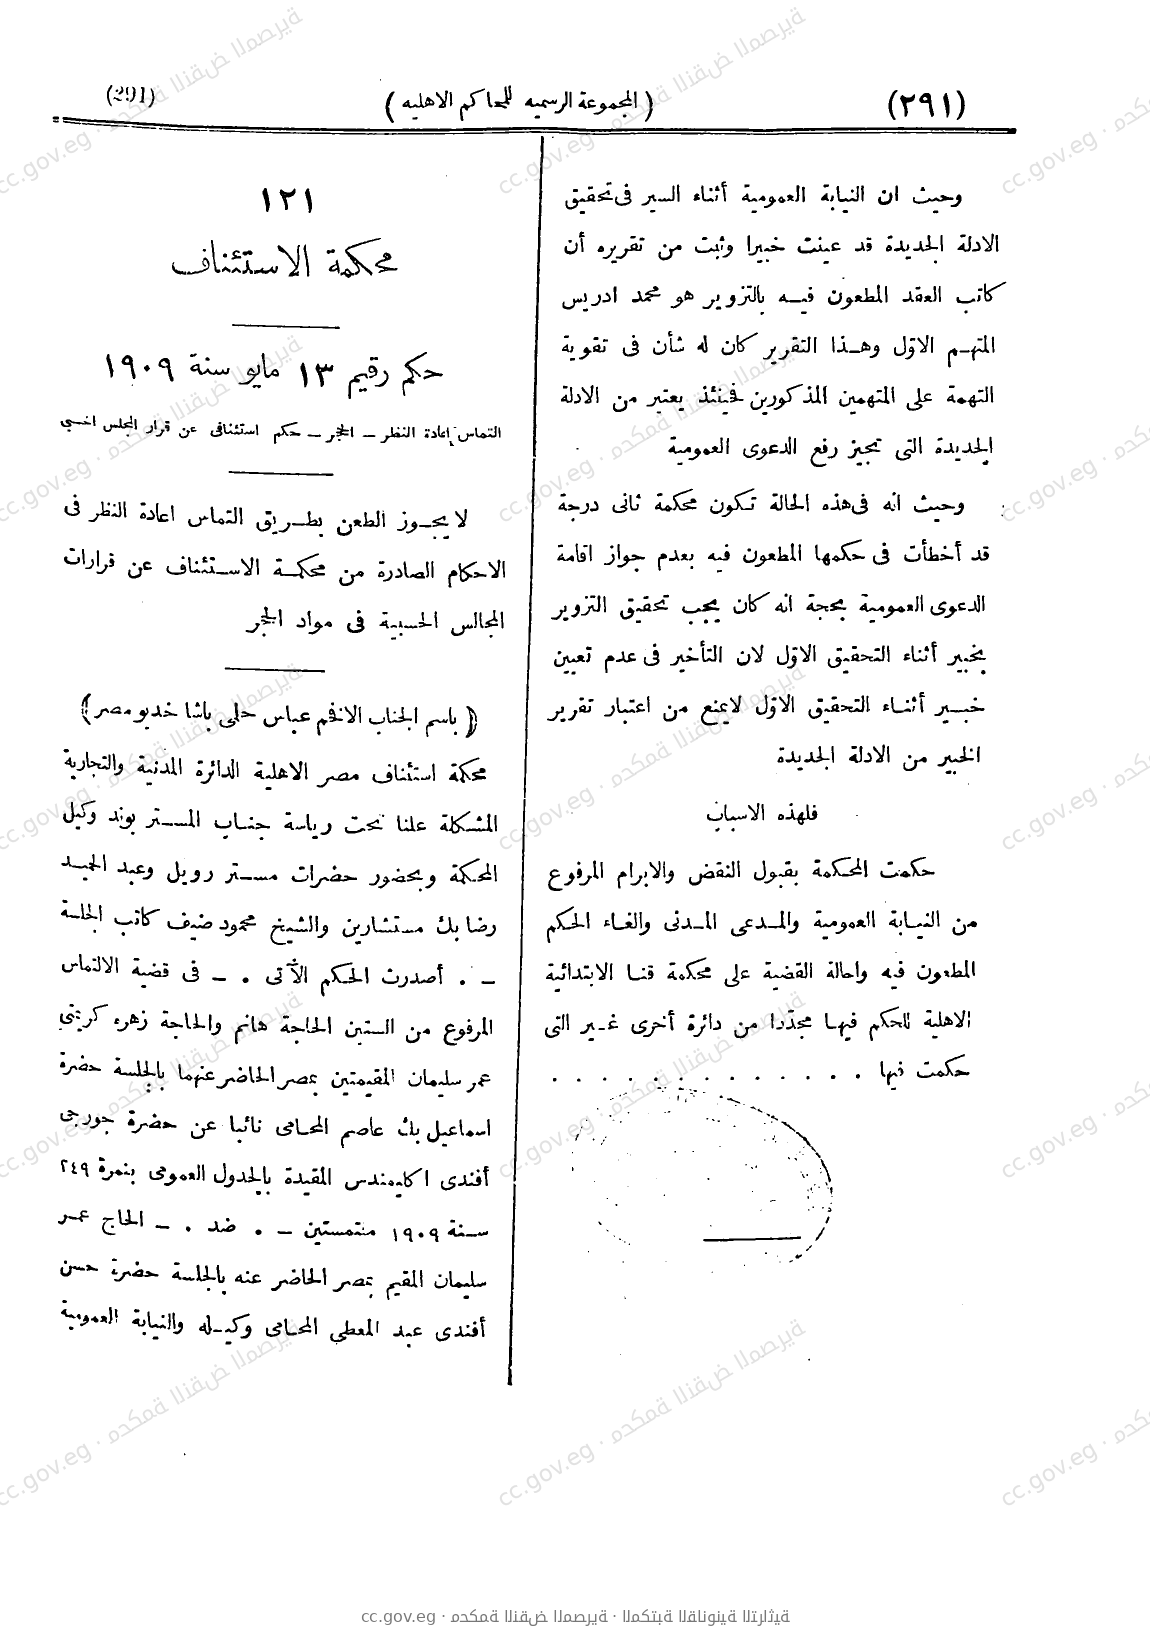 (٢٩١)
( المجموعة الرسميه للمحاكم الاهليه )
(291)
وحيث ان النيابة العمومية أثناء السير فى تحقيق
الادلة الجديدة قد عينت خبيرا وثبت من تقريره أن
كاتب العقد المطعون فيه بالتزوير هو محمد ادريس
المتهم الاوّل وهذا التقرير كان له شأن فى تقوية
التهمة على المتهمين المذكورين فحينئذ يعتبر من الادلة
الجديدة التى تجيز رفع الدعوى العمومية
وحيث انه فى هذه الحالة تكون محكمة ثانى درجة
قد أخطأت فى حكمها المطعون فيه بعدم جواز اقامة
الدعوى العمومية بحجة انه كان يجب تحقيق التزوير
بخبير أثناء التحقيق الاوّل لان التأخير فى عدم تعيين
خبير أثناء التحقيق الاوّل لايمنع من اعتبار تقرير
الخبير من الادلة الجديدة
فلهذه الاسباب
حكمت المحكمة بقبول النقض والابرام المرفوع
من النيابة العمومية والمدعى المدنى والغاء الحكم
المطعون فيه واحالة القضية على محكمة قنا الابتدائية
الاهلية للحكم فيها مجدّدا من دائرة أخرى غير التى
حكمت فيها . . . . . . . . . . . . .
١٢١
محكمة الاستئناف
حكم رقيم ١٣ مايو سنة ١٩٠٩
التماس اعادة النظر – الحجر – حكم استئنافى عن قرار المجلس الحسبى
لا يجوز الطعن بطريق التماس اعادة النظر فى
الاحكام الصادرة من محكمة الاستئناف عن قرارات
المجالس الحسبية فى مواد الحجر
( باسم الجناب الافخم عباس حلمى باشا خديو مصر )
محكمة استئناف مصر الاهلية الدائرة المدنية والتجارية
المشكلة علنا تحت رياسة جناب المستر بوند وكيل
المحكمة وبحضور حضرات مستر رويل وعبد الحميد
رضا بك مستشارين والشيخ محمود ضيف كاتب الجلسة
– . أصدرت الحكم الآتى . – فى قضية الالتماس
المرفوع من الستين الحاجة هانم والحاجة زهره كريمتى
عمر سليمان المقيمتين بمصر الحاضر عنهما بالجلسة حضرة
اسماعيل بك عاصم المحامى نائبا عن حضرة جورجى
أفندى اكليمندس المقيدة بالجدول العمومى بنمرة ٢٤٩
سنة ١٩٠٩ ملتمستين – . ضد . – الحاج عمر
سليمان المقيم بمصر الحاضر عنه بالجلسة حضرة حسن
أفندى عبد المعطى المحامى وكيله والنيابة العمومية
cc.gov.eg · محكمة النقض المصرية · المكتبة القانونية التراثية